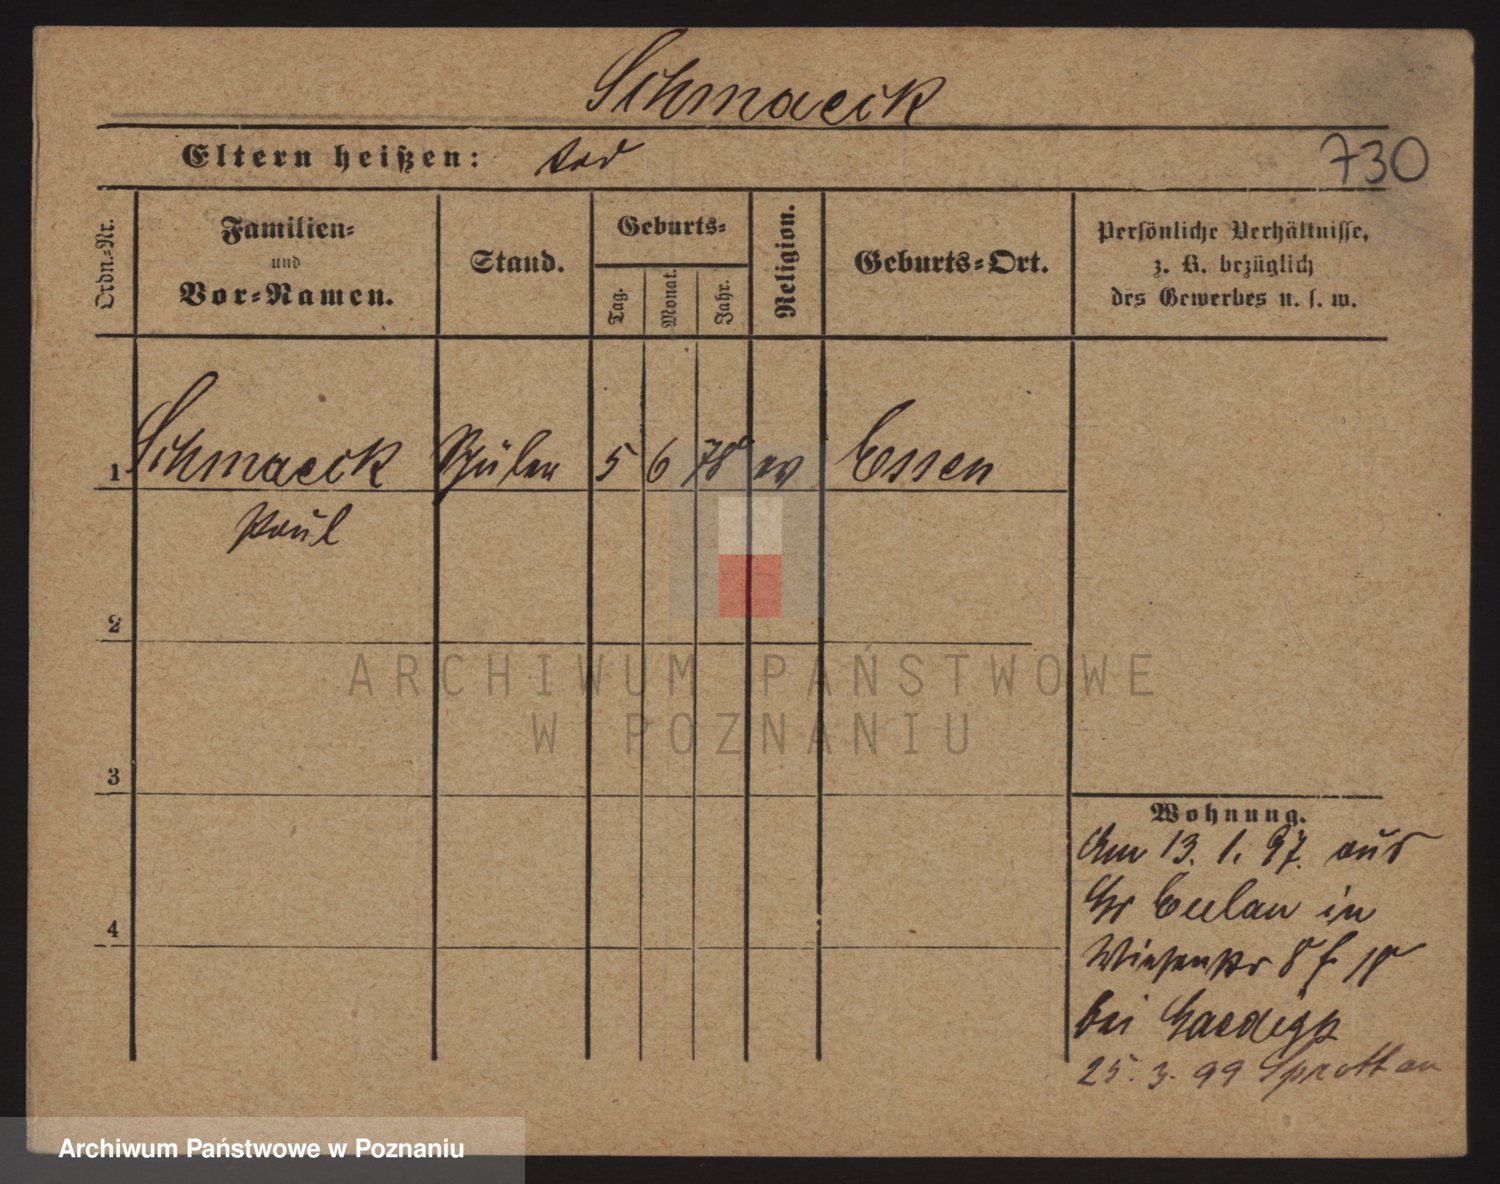 Schmaeck
Eltern heißen: tod
730
Ordn.-Nr.
Familien-
und
Vor-Namen.
Stand.
Geburts-
Tag.
Monat.
Jahr.
Religion.
Geburts-Ort.
Persönliche Verhältnisse,
z. B. bezüglich
des Gewerbes u. s. w.
1 Schmaeck Schüler 5 6 78 ev Essen
Paul
2
ARCHIWUM PAŃSTWOWE
W POZNANIU
3
Wohnung.
Am 13. 1. 97. aus
Gr in
4
Wiesenstr 8
bei
25. 3. 99 Sprottau
Archiwum Państwowe w Poznaniu